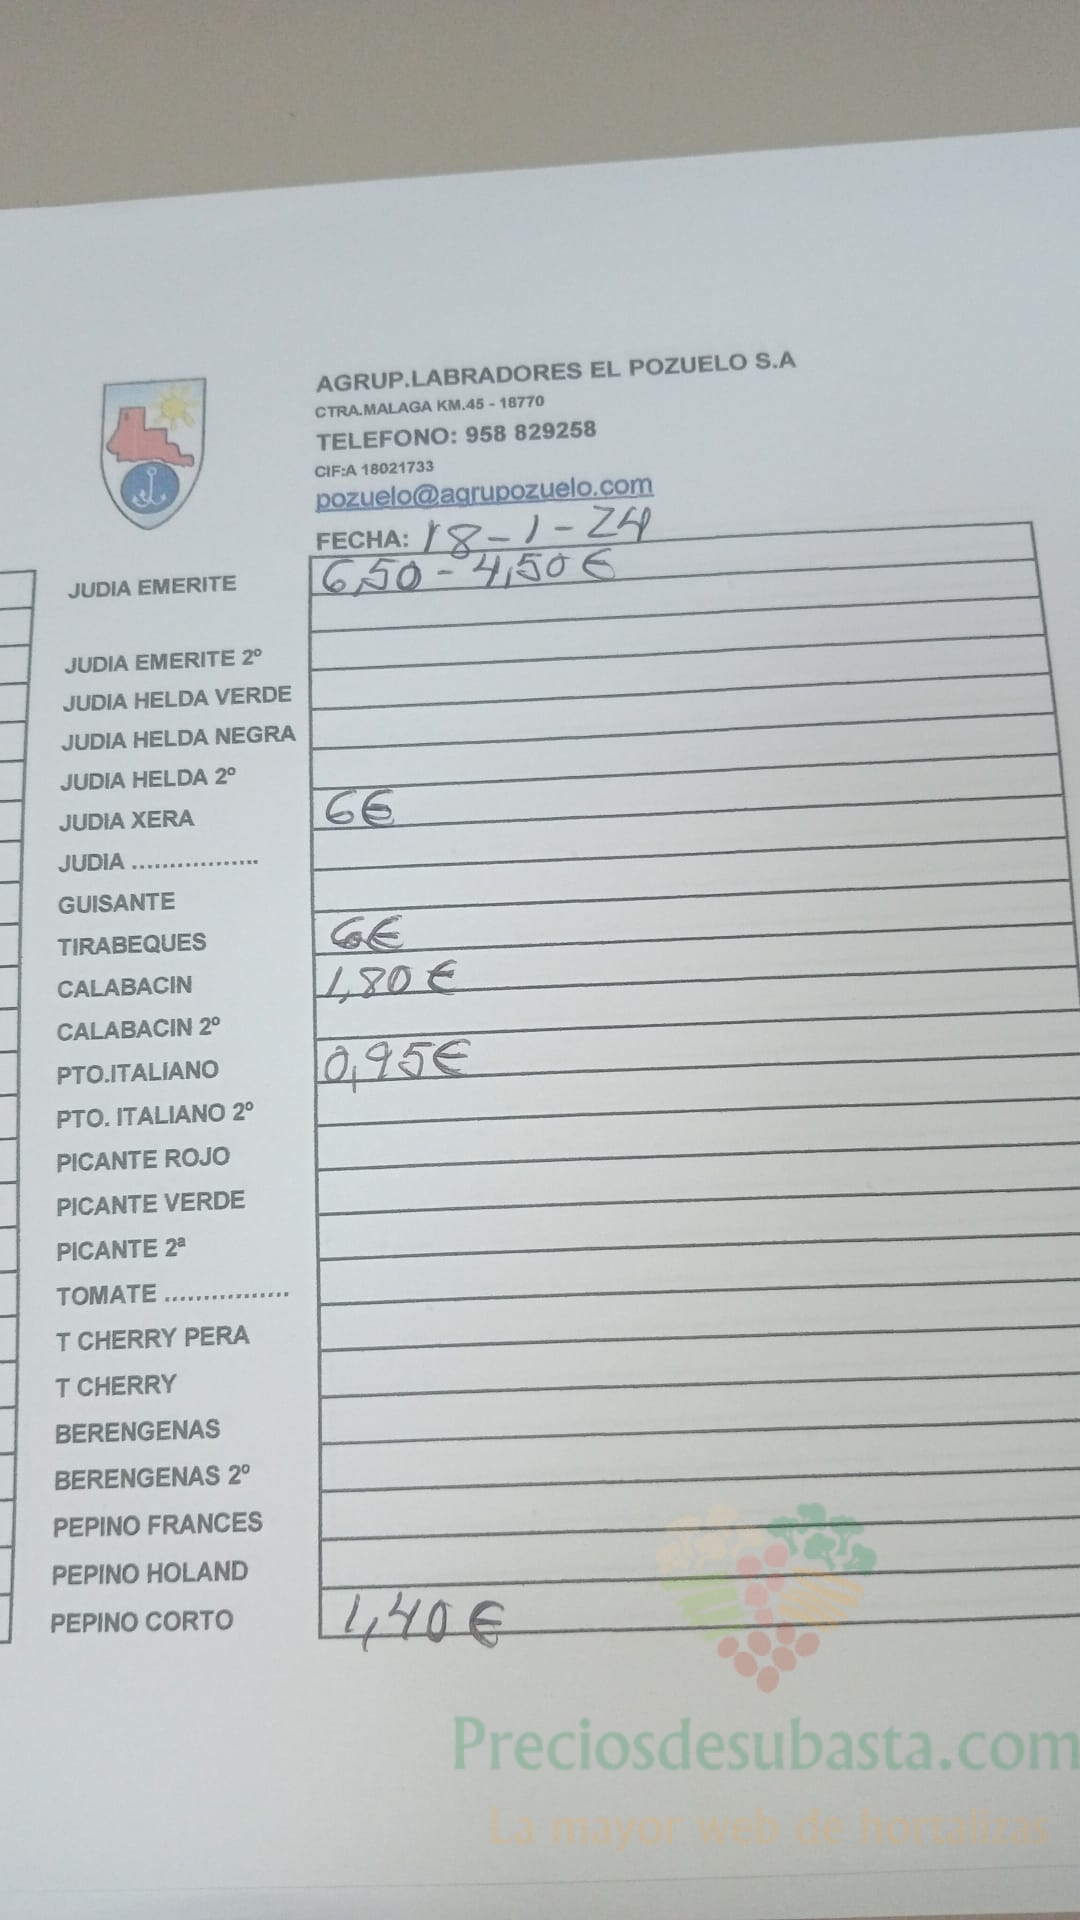 AGRUP.LABRADORES EL POZUELO S.A
CTRA.MALAGA KM.45 - 18770
TELEFONO: 958 829258
CIF:A 18021733
pozuelo@agrupozuelo.com
FECHA: 18-1-24
JUDIA EMERITE 6,50 - 4,50 €
JUDIA EMERITE 2º
JUDIA HELDA VERDE
JUDIA HELDA NEGRA
JUDIA HELDA 2º
JUDIA XERA 6€
JUDIA .................
GUISANTE
TIRABEQUES 6€
CALABACIN 1,80 €
CALABACIN 2º
PTO.ITALIANO 0,95€
PTO. ITALIANO 2º
PICANTE ROJO
PICANTE VERDE
PICANTE 2ª
TOMATE ................
T CHERRY PERA
T CHERRY
BERENGENAS
BERENGENAS 2º
PEPINO FRANCES
PEPINO HOLAND
PEPINO CORTO 1,40 €
Preciosdesubasta.com
La mayor web de hortalizas